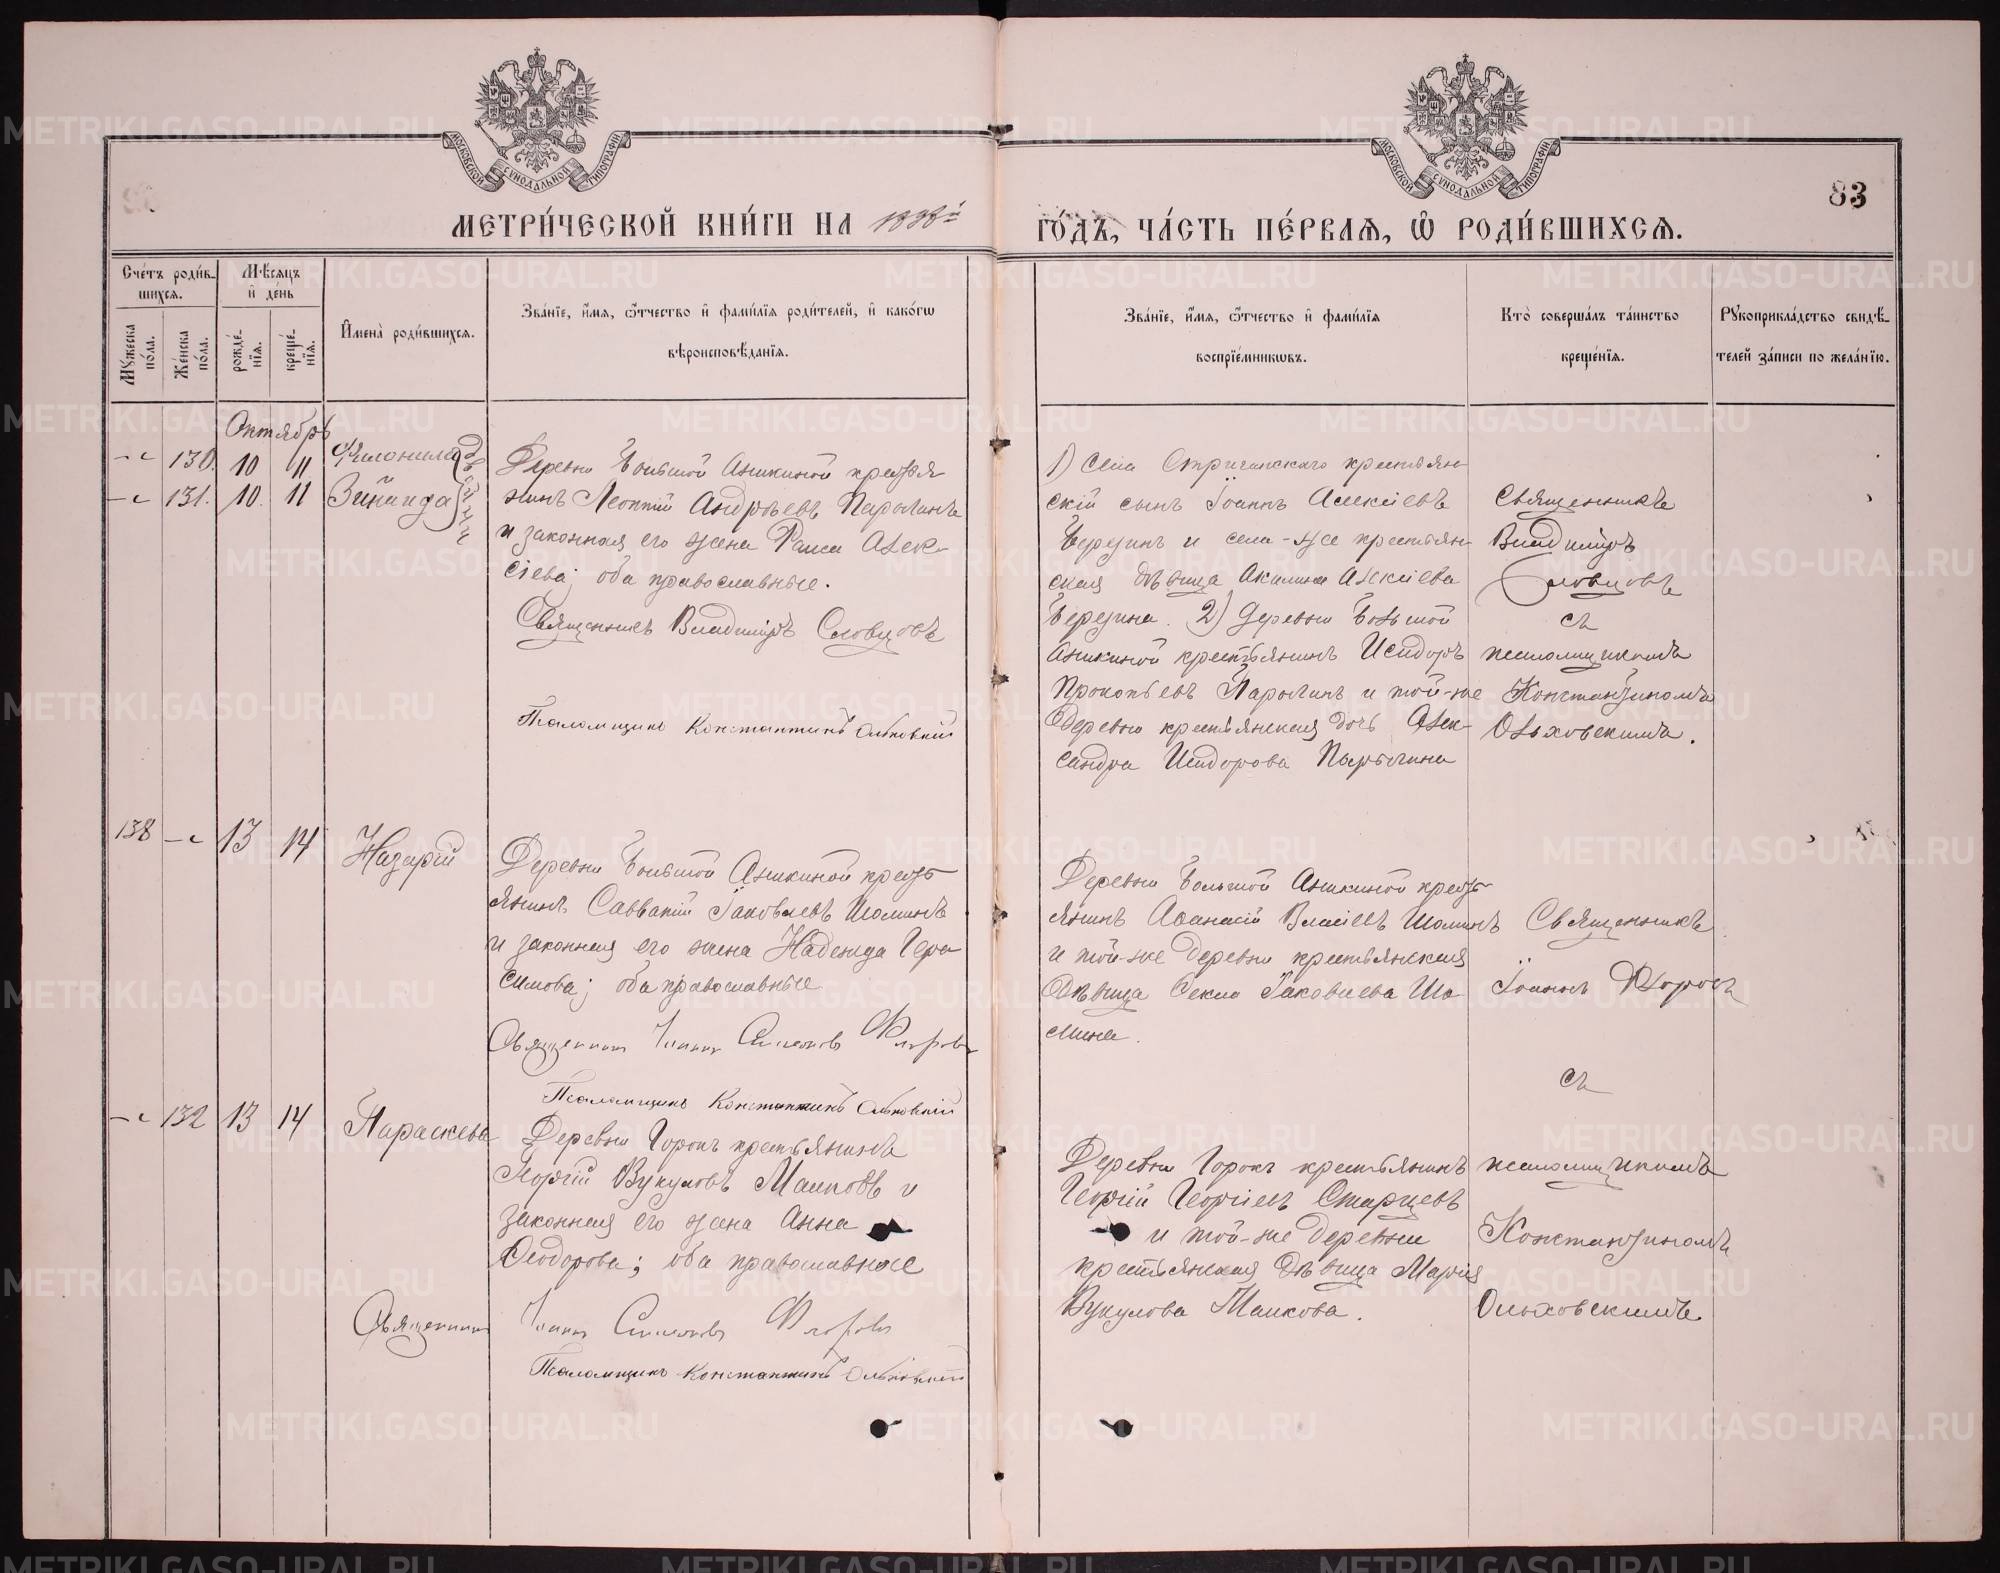 МОСКОВСКОЙ СѴНОДАЛЬНОЙ ТИПОГРАФІИ
МОСКОВСКОЙ СѴНОДАЛЬНОЙ ТИПОГРАФІИ
83
МЕТРИ́ЧЕСКОЙ КНИ́ГИ НА 1888й
ГО́ДЪ, ЧА́СТЬ ПЕ́РВАѦ, Ѡ РОДИ́ВШИХСѦ.
Сче́тъ роди́в-
шихсѧ.
Мꙋжеска по́ла.
Же́нска по́ла.
Мѣ́сѧцъ
и де́нь
рожде́-
нїѧ.
креще́-
нїѧ.
Имена̀ роди́вшихсѧ.
Зва́нїе, и́мѧ, ѻ҆́тчество и҆ фами́лїѧ роди́телей, и҆ како́гѡ
вѣроисповѣ́данїѧ.
Зва́нїе, и́мѧ, ѻ҆́тчество и҆ фами́лїѧ
воспрїе́мникѡвъ.
Кто̀ соверша́лъ та́инство
креще́нїѧ.
Рꙋкоприкла́дство свидѣ́-
телей за́писи по жела́нїю.
Октябрь
130. 10 11 Филонилла
131. 10. 11 Зинаида
Деревни Большой Аникиной крестья-
нинъ Леонтій Андреевъ Парычинъ
и законная его жена Раиса Алек-
сіева; оба православные.
Священникъ Владиміръ Словцовъ
Псаломщикъ Константинъ Ольховскій
1) села Стриганскаго крестьян-
скій сынъ Іоаннъ Алексіевъ
Березинъ и села-же крестьян-
ская дѣвица Акилина Алексіева
Березина. 2) деревни Большой
Аникиной крестьянинъ Исидоръ
Прокопьевъ Парычинъ и той-же
деревни крестьянская дочь Алек-
сандра Исидорова Парычина
Священникъ
Владиміръ
Словцовъ
съ
псаломщикомъ
Константиномъ
Ольховскимъ.
138 13 14 Назарій
Деревни Большой Аникиной кресть-
янинъ Савватій Іаковлевъ Шоминъ
и законная его жена Надежда Гера
симова; оба православные
Священникъ Іоаннъ Симеоновъ Флоровъ
Псаломщикъ Константинъ Ольховскій
Деревни Большой Аникиной кресть-
янинъ Аѳанасій Власіевъ Шоминъ
и той-же деревни крестьянская
дѣвица Ѳекла Іаковлева Шо-
мина.
Священникъ
Іоаннъ Флоровъ
съ
132 13 14 Параскева
Деревни Горокъ крестьянинъ
Георгій Вукуловъ Малковъ и
законная его жена Анна
Ѳеодорова; оба православные
Священникъ Іоаннъ Симеоновъ Флоровъ
Псаломщикъ Константинъ Ольховскій
Деревни Горокъ крестьянинъ
Георгій Георгіевъ Старцевъ
и той-же деревни
крестьянская дѣвица Марія
Вукулова Малкова.
псаломщикомъ
Константиномъ
Ольховскимъ.
METRIKI.GASO-URAL.RU